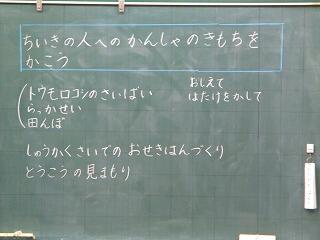 ちいきの人へのかんしゃのきもちを
かこう
トウモロコシのさいばい
らっかせい
田んぼ
おしえて
はたけをかして
しゅうかくさいでのおせきはんづくり
とうこうの見まもり